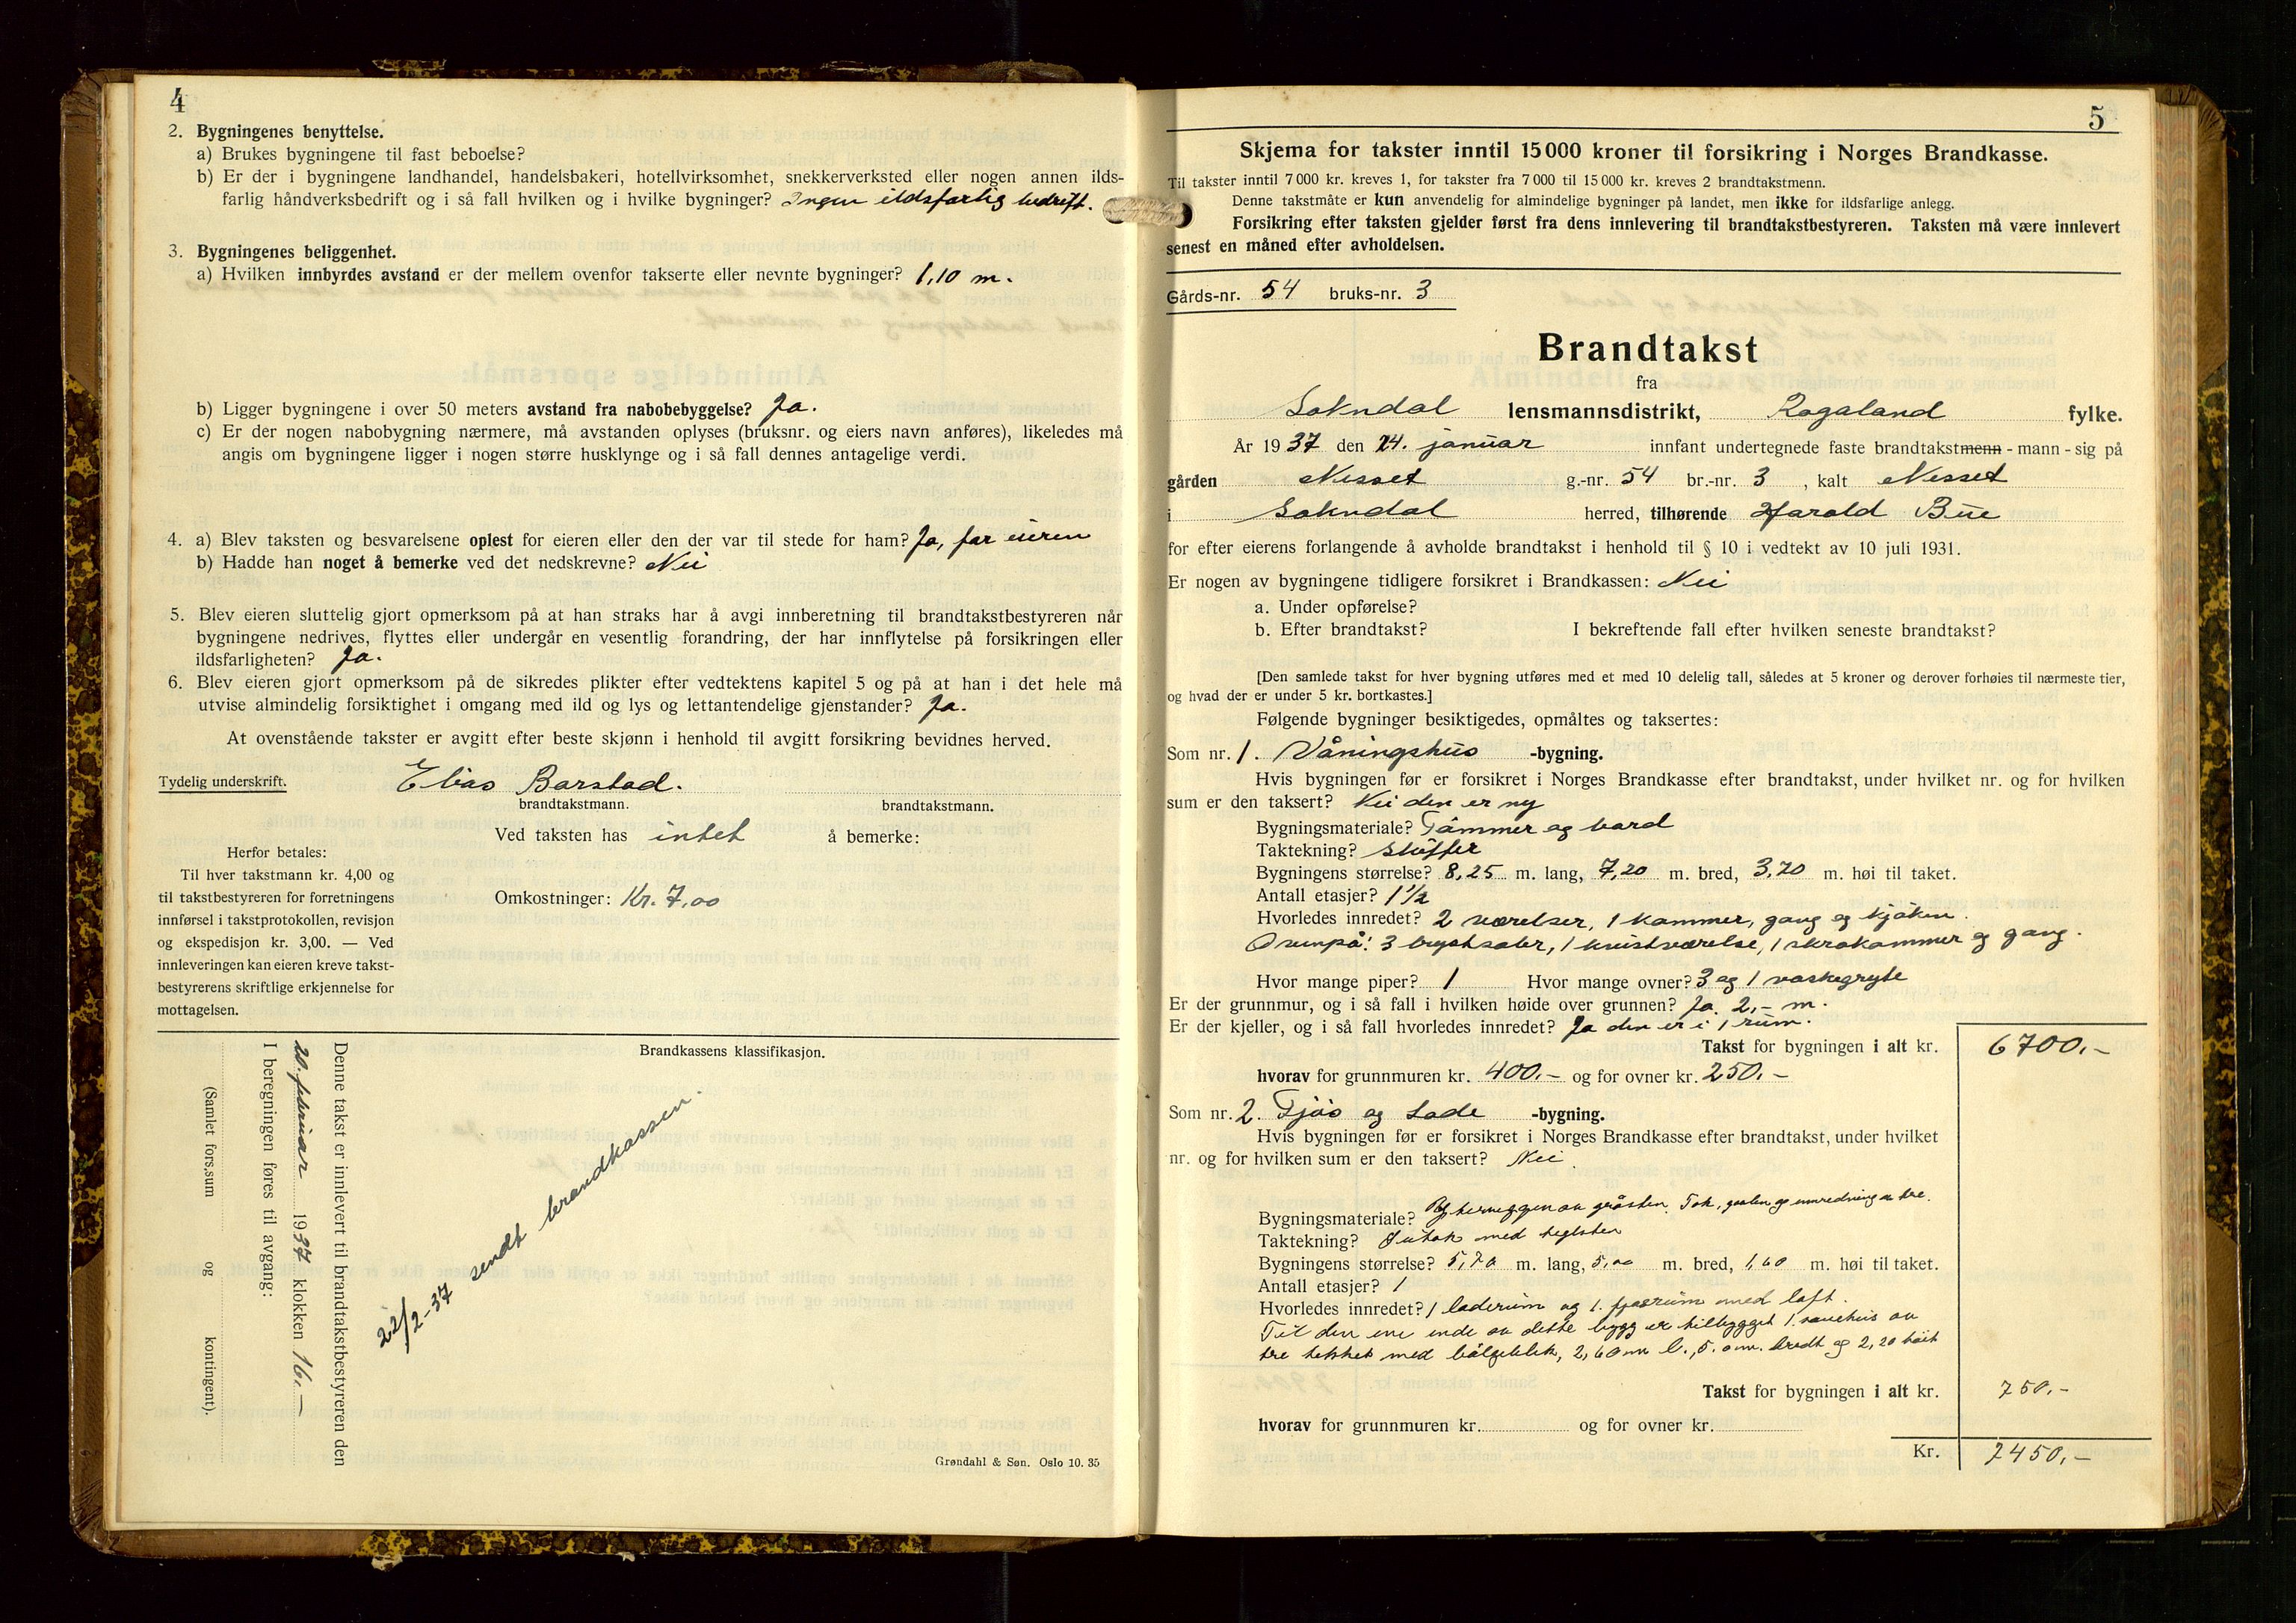 4
2. Bygningenes benyttelse.
a) Brukes bygningene til fast beboelse?
b) Er der i bygningene landhandel, handelsbakeri, hotellvirksomhet, snekkerverksted eller nogen annen ilds-
farlig håndverksbedrift og i så fall hvilken og i hvilke bygninger? Ingen ildsfarlig bedrift.
3. Bygningenes beliggenhet.
a) Hvilken innbyrdes avstand er der mellem ovenfor takserte eller nevnte bygninger? 1,10 m.
b) Ligger bygningene i over 50 meters avstand fra nabobebyggelse? Ja.
c) Er der nogen nabobygning nærmere, må avstanden oplyses (bruksnr. og eiers navn anføres), likeledes må
angis om bygningene ligger i nogen større husklynge og i så fall dennes antagelige verdi.
4. a) Blev taksten og besvarelsene oplest for eieren eller den der var til stede for ham? Ja, for eieren
b) Hadde han noget å bemerke ved det nedskrevne? Nei
5. Blev eieren sluttelig gjort opmerksom på at han straks har å avgi innberetning til brandtakstbestyreren når
bygningene nedrives, flyttes eller undergår en vesentlig forandring, der har innflytelse på forsikringen eller
ildsfarligheten? Ja.
6. Blev eieren gjort opmerksom på de sikredes plikter efter vedtektens kapitel 5 og på at han i det hele må
utvise almindelig forsiktighet i omgang med ild og lys og lettantendelige gjenstander? Ja.
At ovenstående takster er avgitt efter beste skjønn i henhold til avgitt forsikring bevidnes herved.
Tydelig underskrift. Elias Barstad.
brandtakstmann. brandtakstmann.
Ved taksten has intet å bemerke:
Herfor betales:
Til hver takstmann kr. 4,00 og
til takstbestyreren for forretningens
innførsel i takstprotokollen, revisjon
og ekspedisjon kr. 3,00. — Ved
innleveringen kan eieren kreve takst-
bestyrerens skriftlige erkjennelse for
mottagelsen.
Omkostninger: Kr. 7,00
Brandkassens klassifikasjon.
Denne takst er innlevert til brandtakstbestyreren den
20. februar 1937 klokken 16,—
I beregningen føres til avgang:
(Samlet fors.sum og kontingent).
22/2-37 sendt brandkassen.
Grøndahl & Søn. Oslo 10. 35
5
Skjema for takster inntil 15 000 kroner til forsikring i Norges Brandkasse.
Til takster inntil 7 000 kr. kreves 1, for takster fra 7 000 til 15 000 kr. kreves 2 brandtakstmenn.
Denne takstmåte er kun anvendelig for almindelige bygninger på landet, men ikke for ildsfarlige anlegg.
Forsikring efter taksten gjelder først fra dens innlevering til brandtakstbestyreren. Taksten må være innlevert
senest en måned efter avholdelsen.
Gårds-nr. 54 bruks-nr. 3
Brandtakst
fra
Sokndal lensmannsdistrikt, Rogaland fylke.
År 1937 den 24. januar innfant undertegnede faste brandtakstmenn - mann - sig på
gården Nesset g.-nr. 54 br.-nr. 3, kalt Nesset
i Sokndal herred, tilhørende Harald Bue
for efter eierens forlangende å avholde brandtakst i henhold til § 10 i vedtekt av 10 juli 1931.
Er nogen av bygningene tidligere forsikret i Brandkassen: Nei
a. Under opførelse?
b. Efter brandtakst? I bekreftende fall efter hvilken seneste brandtakst?
[Den samlede takst for hver bygning utføres med et med 10 delelig tall, således at 5 kroner og derover forhøies til nærmeste tier,
og hvad der er under 5 kr. bortkastes.]
Følgende bygninger besiktigedes, opmåltes og taksertes:
Som nr. 1. Våningshus -bygning.
Hvis bygningen før er forsikret i Norges Brandkasse efter brandtakst, under hvilket nr. og for hvilken
sum er den taksert? Nei den er ny
Bygningsmateriale? Tømmer og bord
Taktekning? skiffer
Bygningens størrelse? 8,25 m. lang, 7,20 m. bred, 3,70 m. høi til taket.
Antall etasjer? 1½
Hvorledes innredet? 2 værelser, 1 kammer, gang og kjøken.
Ovenpå: 3 1 kvistværelse, 1 skråkammer og gang.
Hvor mange piper? 1 Hvor mange ovner? 3 og 1 vaskegryte
Er der grunnmur, og i så fall i hvilken høide over grunnen? Ja. 2,- m.
Er der kjeller, og i så fall hvorledes innredet? Ja den er i 1 rum.
Takst for bygningen i alt kr. 6700,-
hvorav for grunnmuren kr. 400,- og for ovner kr. 250,-
Som nr. 2. Fjøs og Lade -bygning.
Hvis bygningen før er forsikret i Norges Brandkasse efter brandtakst, under hvilket
nr. og for hvilken sum er den taksert? Nei.
Bygningsmateriale? av gråsten. Tak, og innredning av tre.
Taktekning? med teglsten
Bygningens størrelse? 5,70 m. lang, 5,00 m. bred, 1,60 m. høi til taket.
Antall etasjer? 1
Hvorledes innredet? 1 laderum og 1. fjøsrum med loft.
Til den ene ende av dette bygg er tilbygget 1 sauehus av
tre tekket med bølgeblik, 2,60 m l., 5.0 m. bredt og 2,20 høit
Takst for bygningen i alt kr. 750,-
hvorav for grunnmuren kr. og for ovner kr.
Kr. 7450,-